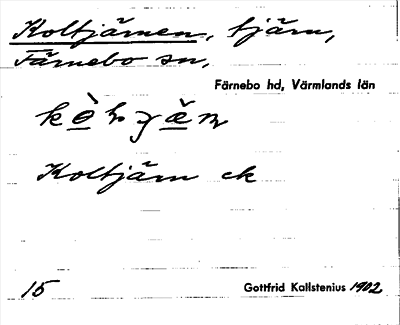 Koltjärnen, tjärn,
Färnebo sn,
Färnebo hd, Värmlands län
Koltjärn ek
15 Gottfrid Kallstenius 1902